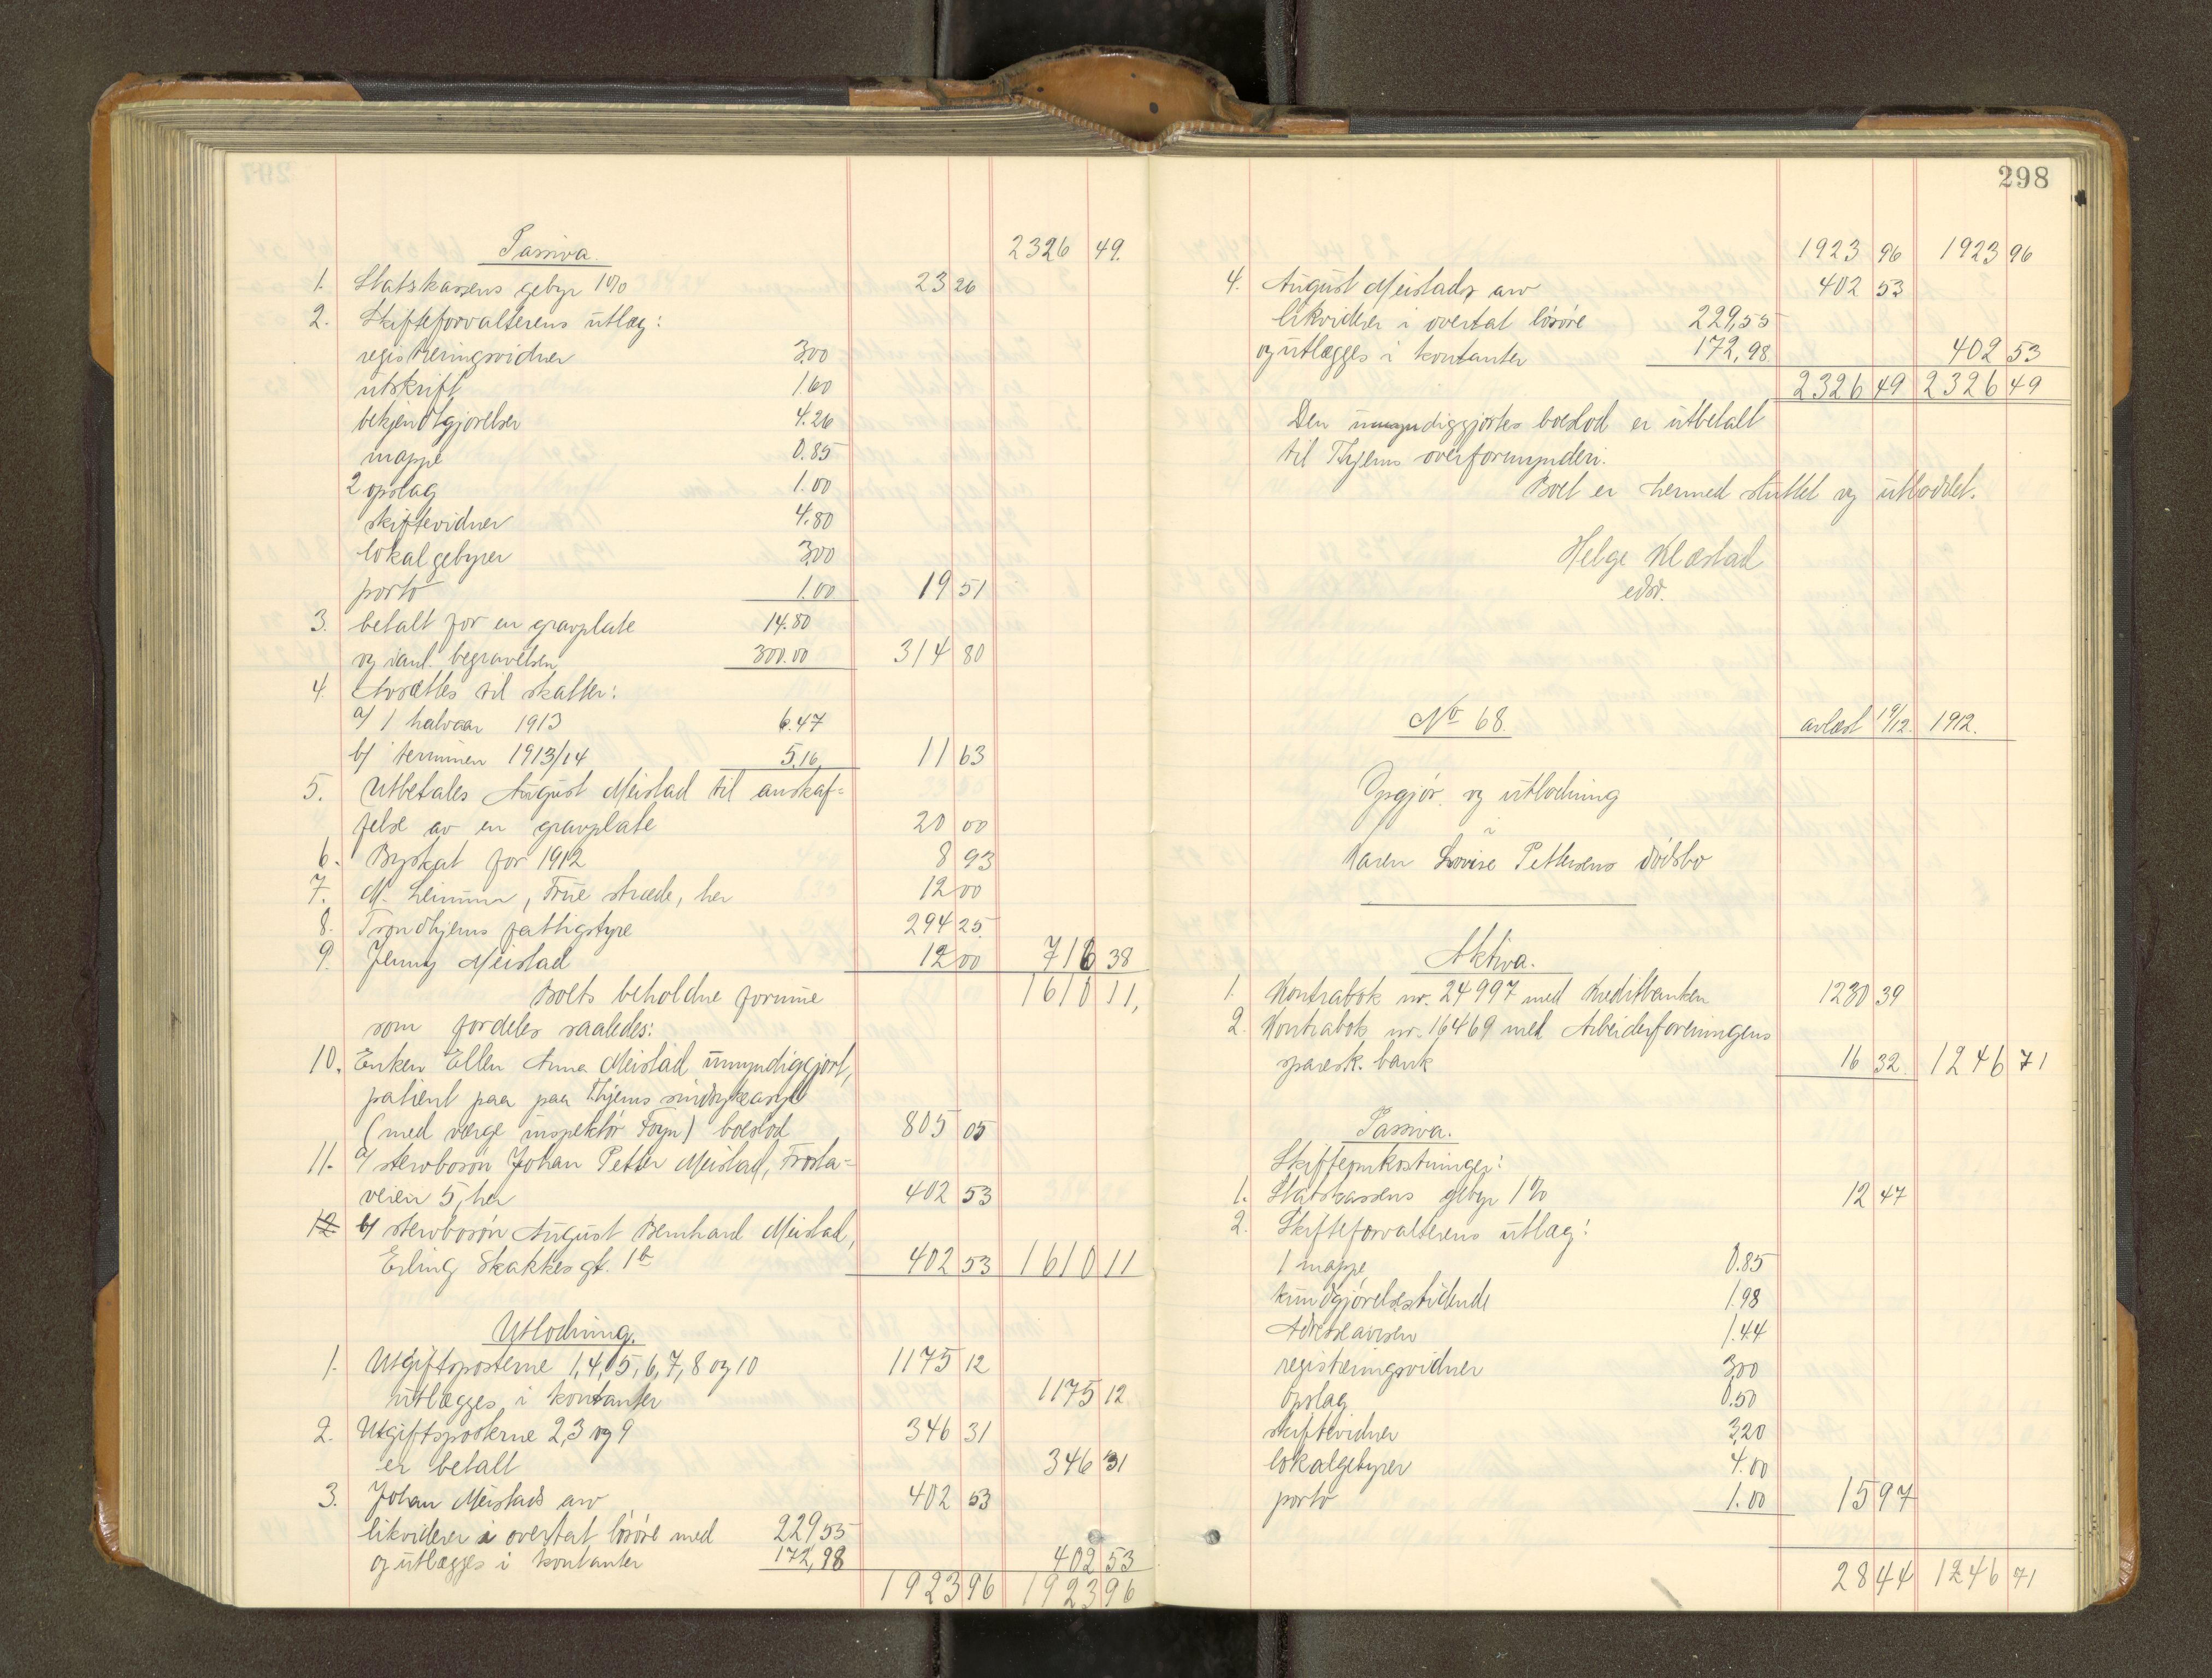 Passiva. 2326 49.
1. Statskassens gebyr 1% 23 26
2. Skifteforvalterens utlæg:
registreringsvidner 3,00
utskrift 1.60
bekjendtgjørelser 4.26
mappe 0.85
2 opslag 1.00
skiftevidner 4.80
lokalgebyrer 3,00
porto 1.00 19 51
3. betalt for en gravplate 14.80
og i anl. begravelsen 300.00 314 80
4. Avsættes til skatter:
a/ 1 halvaar 1913 6.47
b/ terminen 1913/14 5.16 11 63
5. Utbetales August Meistad til anskaf=
felse av en gravplate 20 00
6. Byskat for 1912 8 93
7. M. , Frue stræde, her 12 00
8. Trondhjems fattigstyre 294 25
9. Jenny Meistad 12 00 716 38
Boets beholdne formue 1610 11,
som fordeles saaledes:
10. Enken Ellen Anna Meistad umyndiggjort,
patient paa paa Thjems sindsykeasyl
(med værge inspektør Foyn) boeslod 805 05
11. a/ stervbosøn Johan Petter Meistad, Frosta=
veien 5, her 402 53
12 b/ stervbosøn August Bernhard Meistad,
Erling Skakkes gt. 1b 402 53 1610 11
Utlodning.
1. Utgiftsposterne 1, 4, 5, 6, 7, 8 og 10 1175 12
utlægges i kontanter 1175 12
2. Utgiftsposterne 2, 3 og 9 346 31
er betalt 346 31
3. Johan Meistads arv 402 53
likviderer i overtat løsøre med 229 55
og utlægges i kontanter 172,98 402 53
1923 96 1923 96
298
1923 96 1923 96
4. August Meistads arv 402 53
likviderer i overtat løsøre 229,55
og utlægges i kontanter 172,98 402 53
2326 49 2326 49
Den umyndiggjortes boeslod er utbetalt
til Thjems overformynderi.
Boet er hermed sluttet og utloddet.
Helge Klæstad
edsv.
No 68. avlæst 19/12. 1912.
Opgjør og utlodning
i
Karen Lovise Pettersens dødsbo
Aktiva.
1. Kontrabok nr. 24997 med Kreditbanken 1230 39
2. Kontrabok nr. 16469 med Arbeiderforeningens
sparesk. bank 16 32 1246 71
Passiva.
Skifteomkostninger:
1. Statskassens gebyr 1% 12 47
2. Skifteforvalterens utlæg:
1 mappe 0.85
kundgjørelsestidende 1.98
Adresseavisen 1.44
registreringsvidner 3,00
opslag 0.50
skiftevidner 3,20
lokalgebyrer 4.00
porto 1.00 15 97
28 44 1246 71